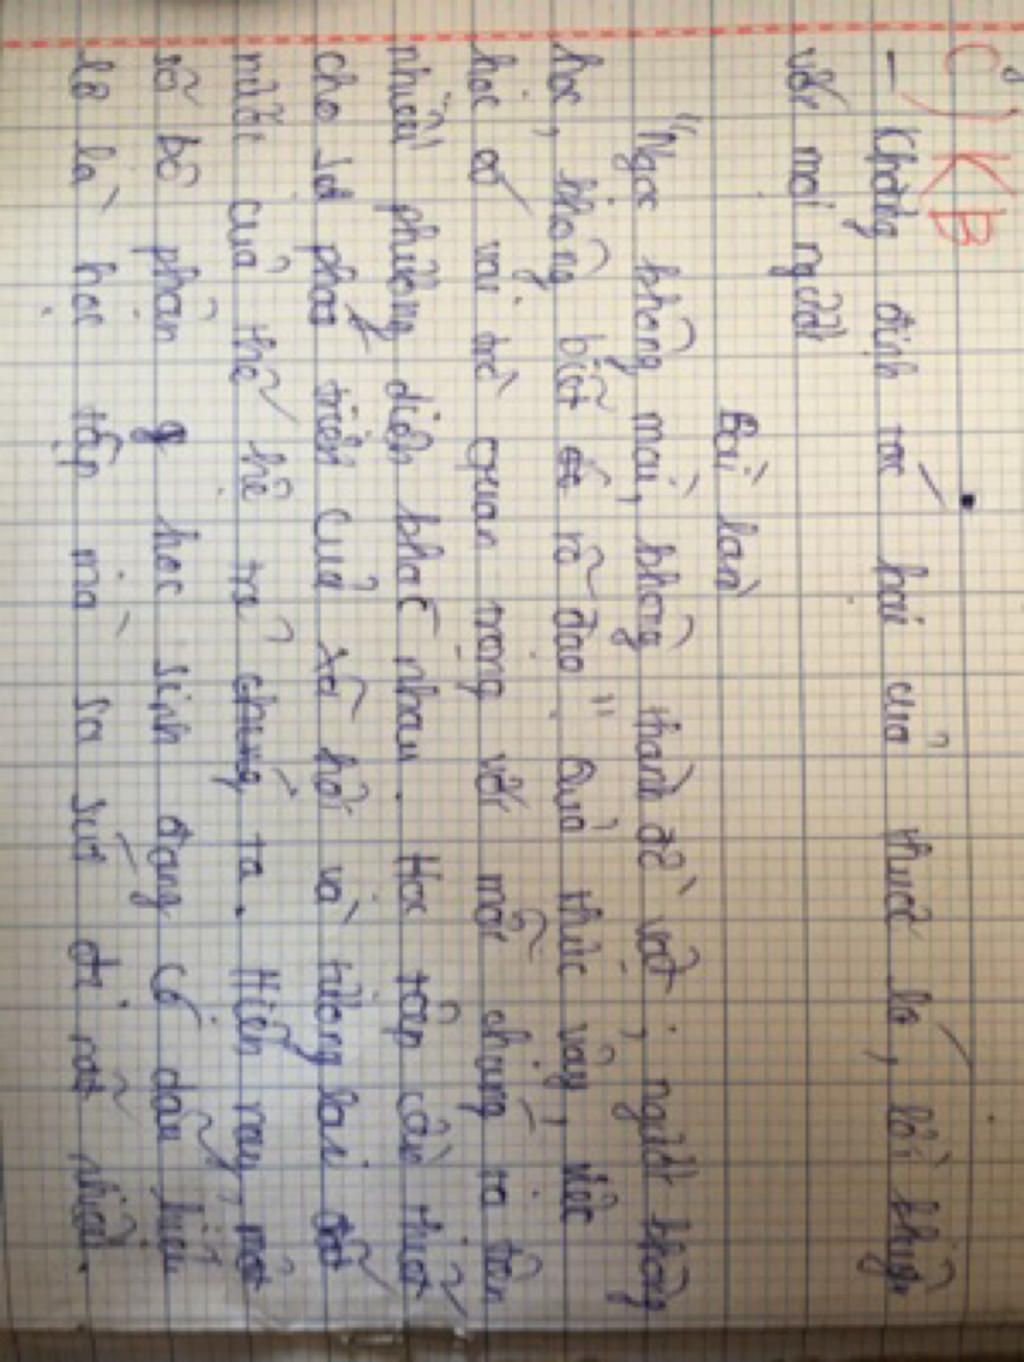 C) KB
- Khẳng định tác hại của thuốc lá, lời khuyên
với mọi người
Bài làm
"Ngọc không mài, không thành đồ vật; người không
học, không biết rõ đạo". Quả thức vậy, việc
học có vai trò quan trọng với mỗi chúng ta trên
nhiều phương diện khác nhau. Học tập cần thiết
cho sự phát triển của xã hội và tương lai đất
nước của thế hệ trẻ chúng ta. Hiện nay, một
số bộ phận học sinh đang có dấu hiệu
lơ là học tập mà sa sút đi rất nhiều.